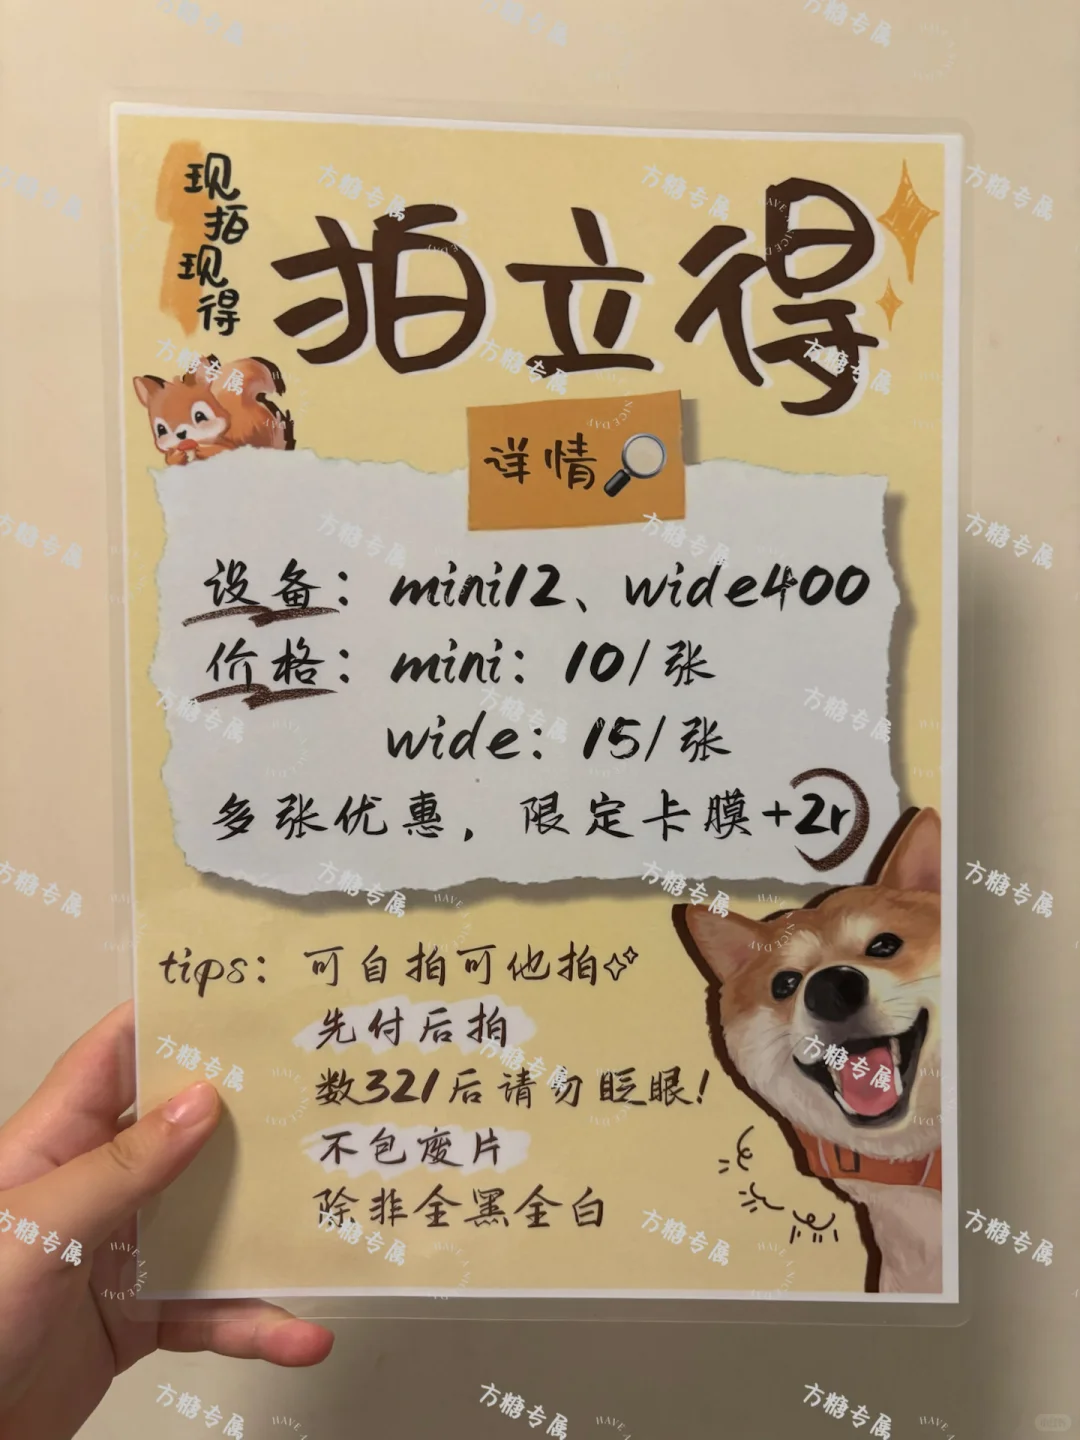 现拍现得
拍立得
详情
设备：mini12、wide400
价格：mini：10/张
wide：15/张
多张优惠，限定卡膜+2r
tips：可自拍可他拍
先付后拍
数321后请勿眨眼！
不包废片
除非全黑全白
方糖专属
HAVE A NICE DAY